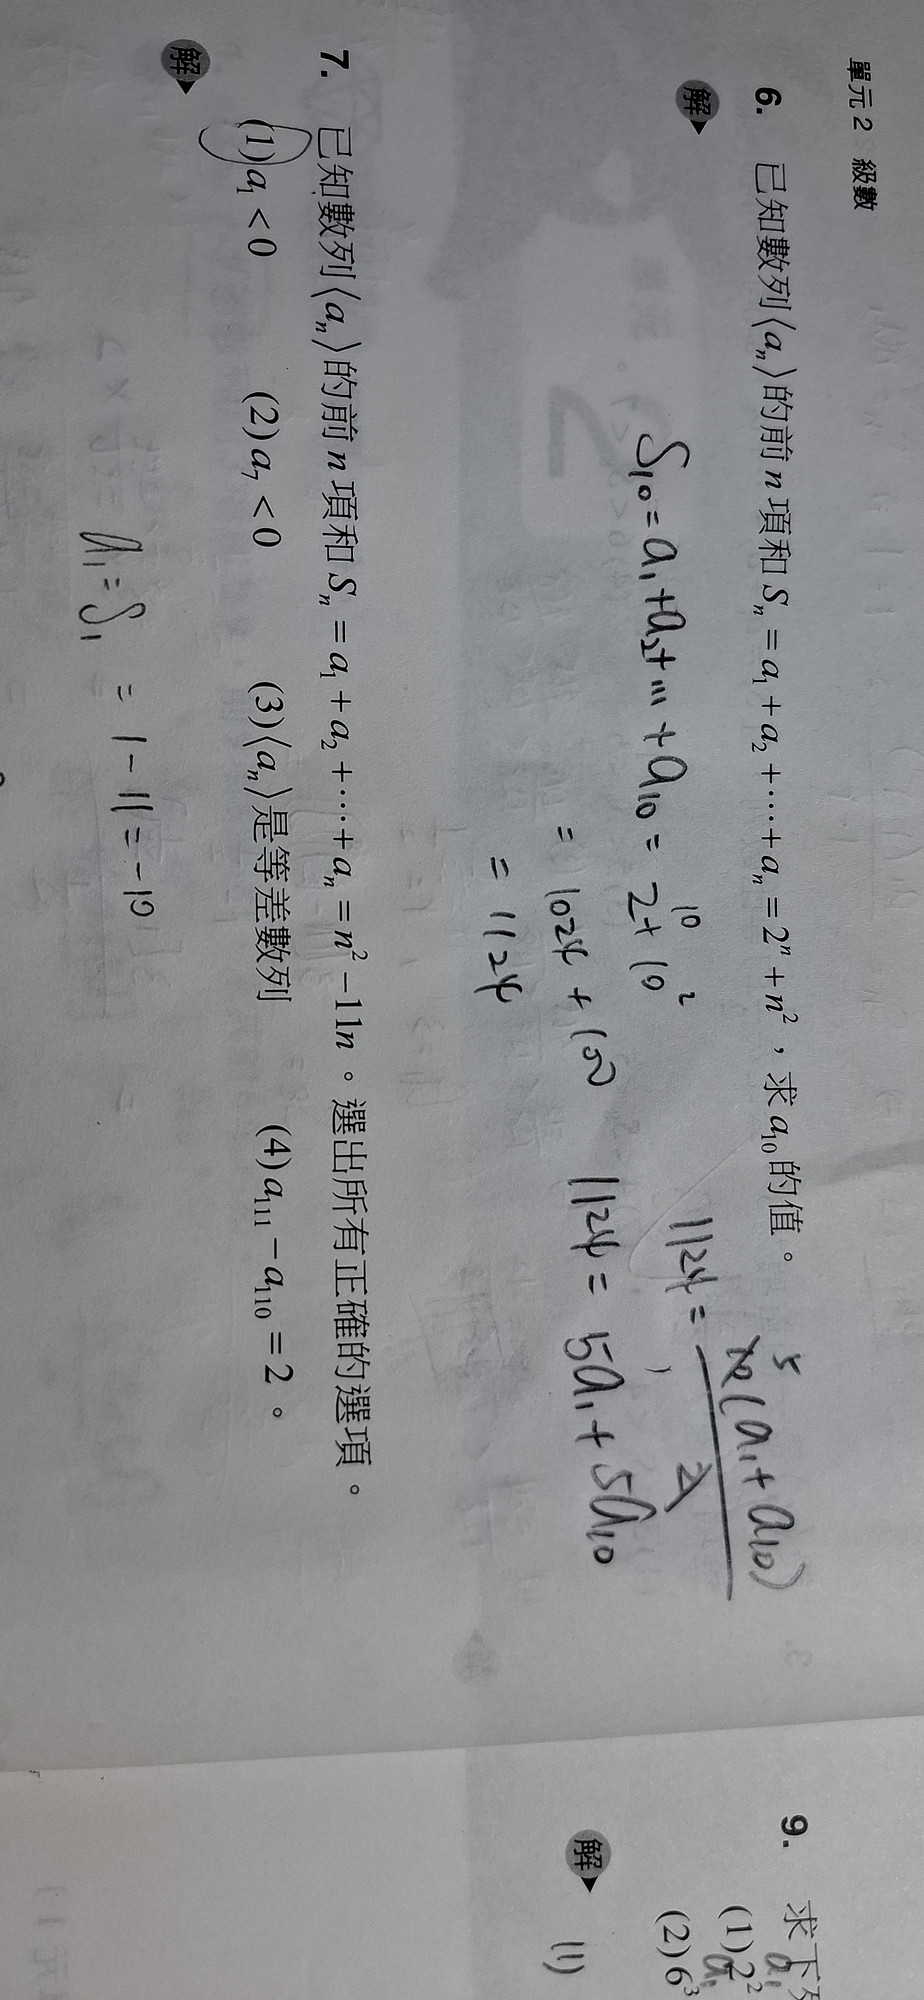 單元 2 級數
6. 已知數列⟨aₙ⟩的前 n 項和 Sₙ = a₁ + a₂ + ⋯ + aₙ = 2ⁿ + n²,求 a₁₀ 的值。
解
S₁₀ = a₁ + a₂ + ⋯ + a₁₀ = 2¹⁰ + 10²
= 1024 + 100
= 1124
1124 = 5 10(a₁ + a₁₀) / 2
1124 = 5a₁ + 5a₁₀
7. 已知數列⟨aₙ⟩的前 n 項和 Sₙ = a₁ + a₂ + ⋯ + aₙ = n² − 11n。選出所有正確的選項。
(1) a₁ < 0 (2) a₇ < 0 (3)⟨aₙ⟩是等差數列 (4) a₁₁₁ − a₁₁₀ = 2。
解
a₁ = S₁ = 1 − 11 = −10
9. 求下列
(1) 2²
(2) 6³
解
(1)